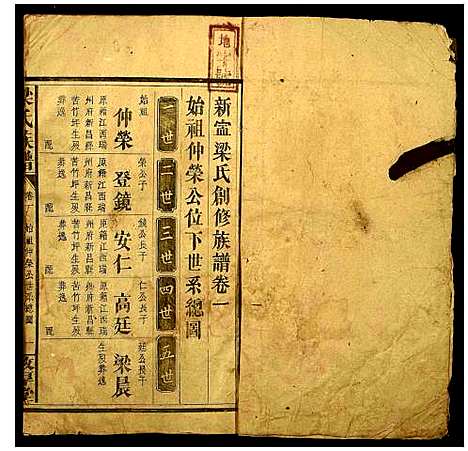 新寍梁氏創修族譜卷一
始祖仲榮公位下世系總圖
一世
二世
三世
四世
五世
始祖
仲榮
原籍江西瑞
州府新昌縣
苦竹坪生殁
葬逸
配
榮公子
登鏡
原籍江西瑞
州府新昌縣
苦竹坪生殁
葬逸
配
鏡公長子
安仁
原籍江西瑞
州府新昌縣
苦竹坪生殁
葬逸
配
仁公長子
高廷
原籍江西瑞
州府新昌縣
苦竹坪生殁
葬逸
配
廷公長子
梁晨
生殁葬逸
梁氏族譜
始祖仲榮公世系總圖
敦厚堂